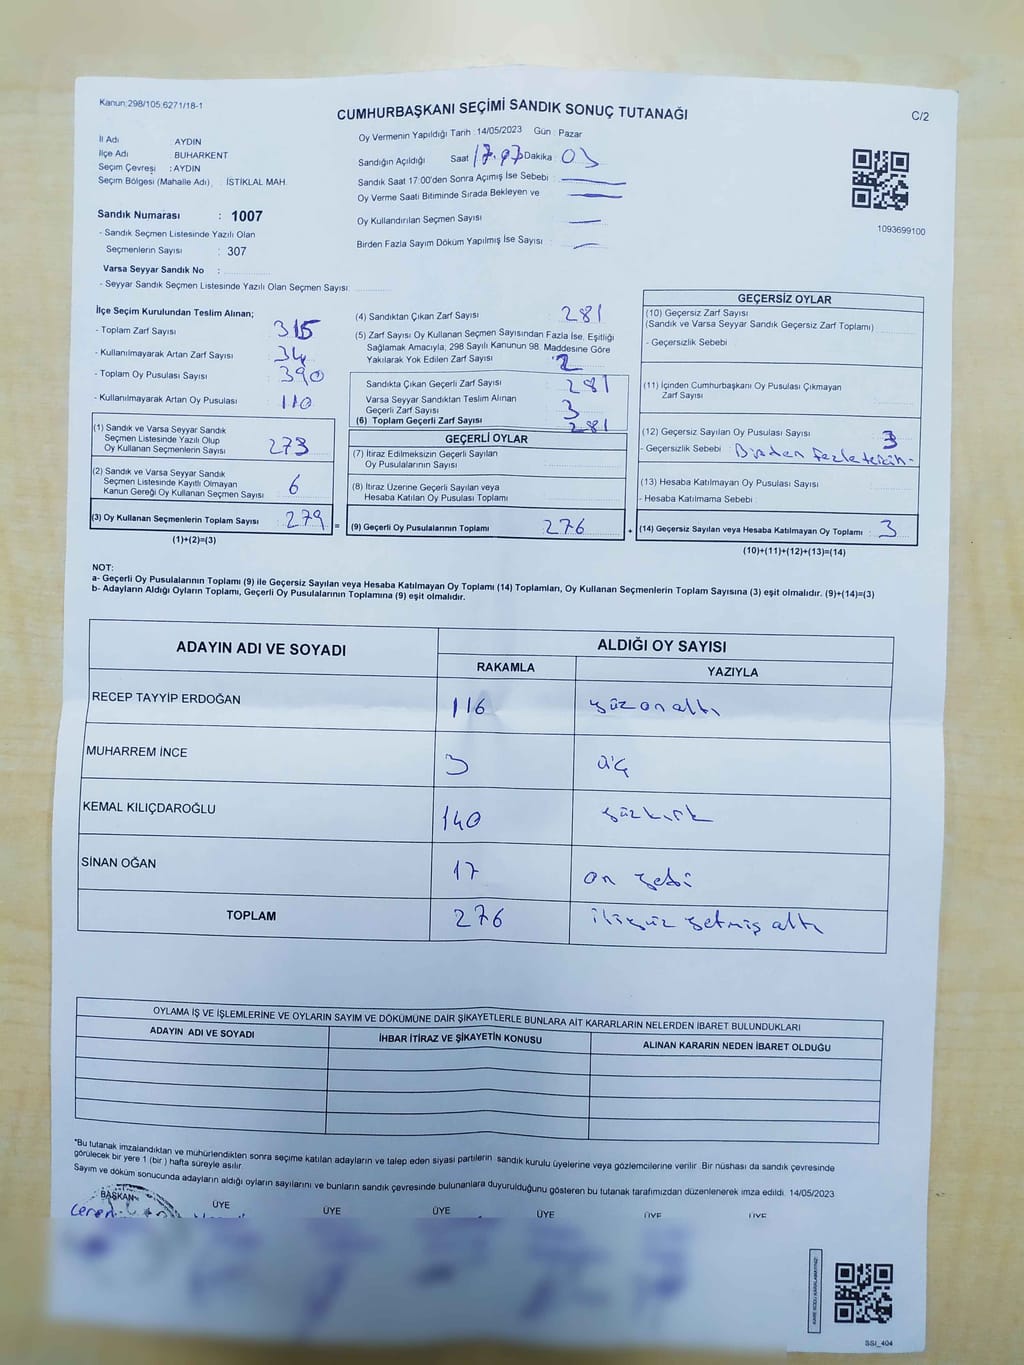 Kanun:298/105,6271/18-1
CUMHURBAŞKANI SEÇİMİ SANDIK SONUÇ TUTANAĞI
C/2
İl Adı : AYDIN
İlçe Adı : BUHARKENT
Seçim Çevresi : AYDIN
Seçim Bölgesi (Mahalle Adı), : İSTİKLAL MAH.
Oy Vermenin Yapıldığı Tarih : 14/05/2023 Gün : Pazar
Sandığın Açıldığı Saat Dakika : 03
Sandık Saat 17:00'den Sonra Açımış İse Sebebi :
Oy Verme Saati Bitiminde Sırada Bekleyen ve
Oy Kullandırılan Seçmen Sayısı
Birden Fazla Sayım Döküm Yapılmış İse Sayısı :
1093699100
Sandık Numarası : 1007
- Sandık Seçmen Listesinde Yazılı Olan
Seçmenlerin Sayısı : 307
Varsa Seyyar Sandık No :
- Seyyar Sandık Seçmen Listesinde Yazılı Olan Seçmen Sayısı:
İlçe Seçim Kurulundan Teslim Alınan;
- Toplam Zarf Sayısı 315
- Kullanılmayarak Artan Zarf Sayısı 34
- Toplam Oy Pusulası Sayısı 390
- Kullanılmayarak Artan Oy Pusulası 110
(1) Sandık ve Varsa Seyyar Sandık
Seçmen Listesinde Yazılı Olup
Oy Kullanan Seçmenlerin Sayısı 273
(2) Sandık ve Varsa Seyyar Sandık
Seçmen Listesinde Kayıtlı Olmayan
Kanun Gereği Oy Kullanan Seçmen Sayısı 6
(3) Oy Kullanan Seçmenlerin Toplam Sayısı 279 =
(1)+(2)=(3)
(4) Sandıktan Çıkan Zarf Sayısı 281
(5) Zarf Sayısı Oy Kullanan Seçmen Sayısından Fazla İse, Eşitliği
Sağlamak Amacıyla, 298 Sayılı Kanunun 98. Maddesine Göre
Yakılarak Yok Edilen Zarf Sayısı 2
Sandıkta Çıkan Geçerli Zarf Sayısı 281
Varsa Seyyar Sandıktan Teslim Alınan
Geçerli Zarf Sayısı 3
(6) Toplam Geçerli Zarf Sayısı 281
GEÇERLİ OYLAR
(7) İtiraz Edilmeksizin Geçerli Sayılan
Oy Pusulalarının Sayısı
(8) İtiraz Üzerine Geçerli Sayılan veya
Hesaba Katılan Oy Pusulası Toplamı
(9) Geçerli Oy Pusulalarının Toplamı 276 +
GEÇERSİZ OYLAR
(10) Geçersiz Zarf Sayısı
(Sandık ve Varsa Seyyar Sandık Geçersiz Zarf Toplamı)
- Geçersizlik Sebebi
(11) İçinden Cumhurbaşkanı Oy Pusulası Çıkmayan
Zarf Sayısı
(12) Geçersiz Sayılan Oy Pusulası Sayısı 3
- Geçersizlik Sebebi : Birden fazla tercih
(13) Hesaba Katılmayan Oy Pusulası Sayısı
- Hesaba Katılmama Sebebi
(14) Geçersiz Sayılan veya Hesaba Katılmayan Oy Toplamı : 3
(10)+(11)+(12)+(13)=(14)
NOT:
a- Geçerli Oy Pusulalarının Toplamı (9) ile Geçersiz Sayılan veya Hesaba Katılmayan Oy Toplamı (14) Toplamları, Oy Kullanan Seçmenlerin Toplam Sayısına (3) eşit olmalıdır. (9)+(14)=(3)
b- Adayların Aldığı Oyların Toplamı, Geçerli Oy Pusulalarının Toplamına (9) eşit olmalıdır.
ADAYIN ADI VE SOYADI ALDIĞI OY SAYISI
RAKAMLA YAZIYLA
RECEP TAYYİP ERDOĞAN 116 yüz on altı
MUHARREM İNCE 3 üç
KEMAL KILIÇDAROĞLU 140 yüzkırk
SİNAN OĞAN 17 on yedi
TOPLAM 276 ikiyüz yetmiş altı
OYLAMA İŞ VE İŞLEMLERİNE VE OYLARIN SAYIM VE DÖKÜMÜNE DAİR ŞİKAYETLERLE BUNLARA AİT KARARLARIN NELERDEN İBARET BULUNDUKLARI
ADAYIN ADI VE SOYADI İHBAR İTİRAZ VE ŞİKAYETİN KONUSU ALINAN KARARIN NEDEN İBARET OLDUĞU
*Bu tutanak imzalandıktan ve mühürlendikten sonra seçime katılan adayların ve talep eden siyasi partilerin sandık kurulu üyelerine veya gözlemcilerine verilir. Bir nüshası da sandık çevresinde
görülecek bir yere 1 (bir ) hafta süreyle asılır.
Sayım ve döküm sonucunda adayların aldığı oyların sayılarını ve bunların sandık çevresinde bulunanlara duyurulduğunu gösteren bu tutanak tarafımızdan düzenlenerek imza edildi. 14/05/2023
BAŞKAN ÜYE ÜYE ÜYE ÜYE ÜYE ÜYE
Ceren
SSI_404